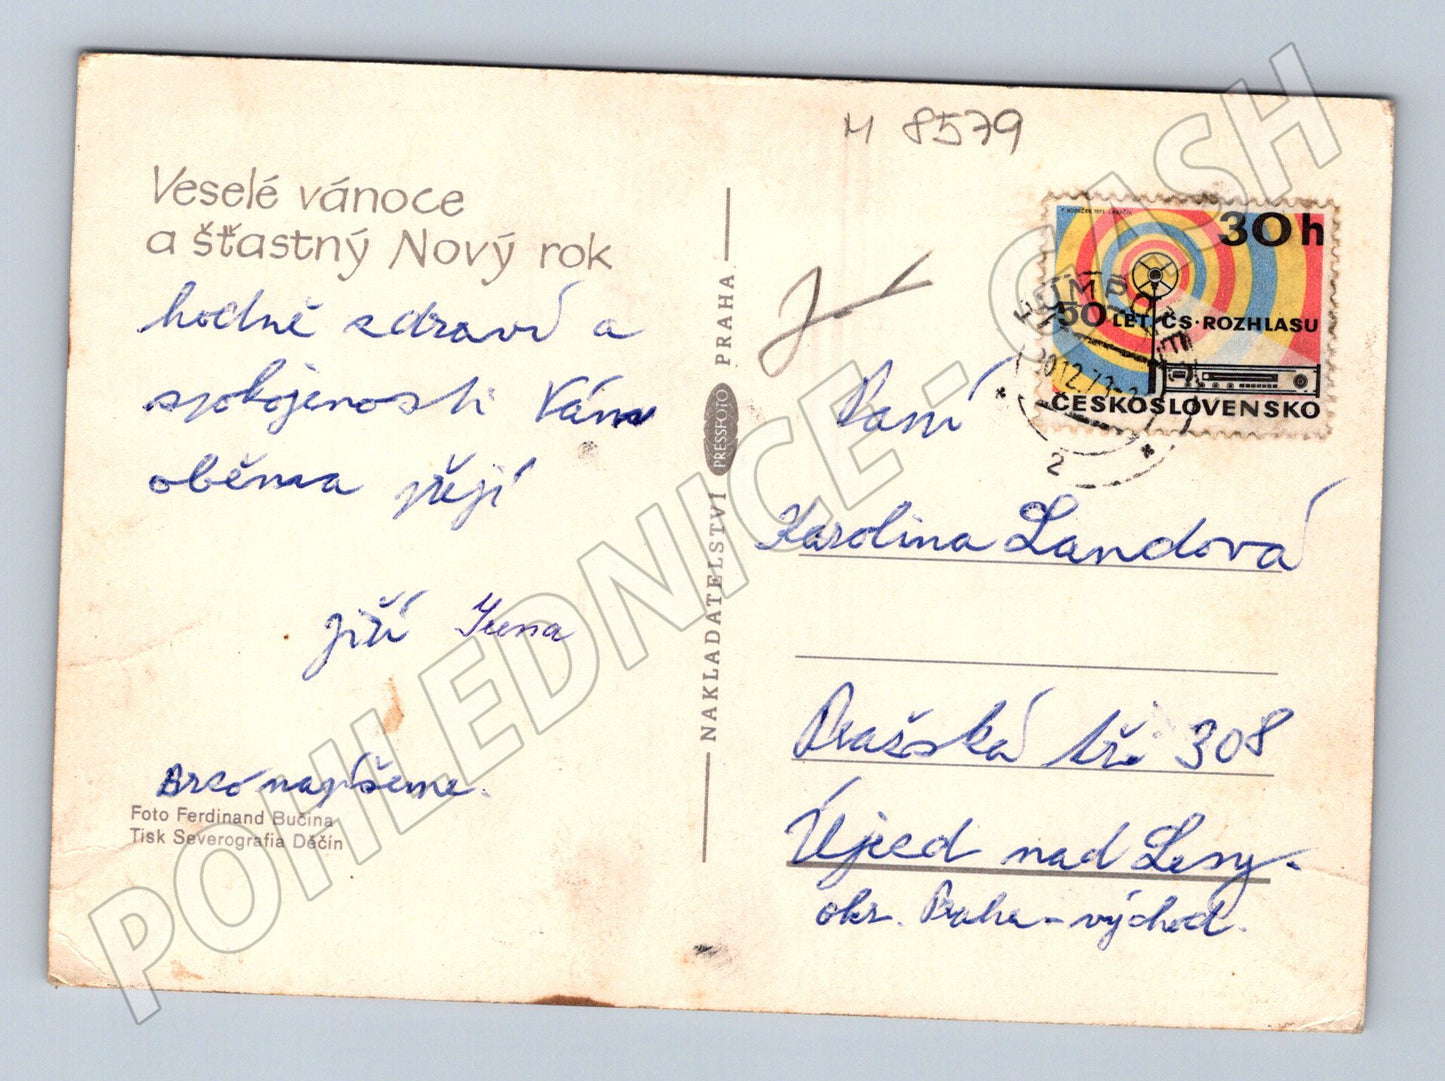 M 8579
Veselé vánoce
a šťastný Nový rok
hodně zdraví a
spokojenosti Vám
oběma přejí
Jiří Jiřina
Brzo napíšeme.
Foto Ferdinand Bučina
Tisk Severografia Děčín
NAKLADATELSTVÍ PRESSFOTO PRAHA
30h
50 LET ČS. ROZHLASU
ČESKOSLOVENSKO
2
Paní
Karolina Landová
Pražská tř. 308
Újezd nad Lesy.
okr. Praha-východ.
POHLEDNICE - CASH